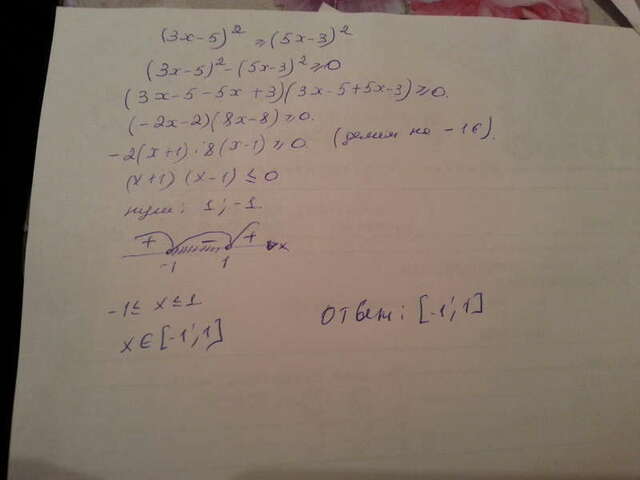 (3x-5)² ≥ (5x-3)²
(3x-5)² - (5x-3)² ≥ 0
(3x-5-5x+3)(3x-5+5x-3) ≥ 0.
(-2x-2)(8x-8) ≥ 0.
-2(x+1)·8(x-1) ≥ 0. (делим на -16).
(x+1)(x-1) ≤ 0
нули: 1; -1.
+ - + x
-1 1
-1 ≤ x ≤ 1
x ∈ [-1; 1]
Ответ: [-1; 1]